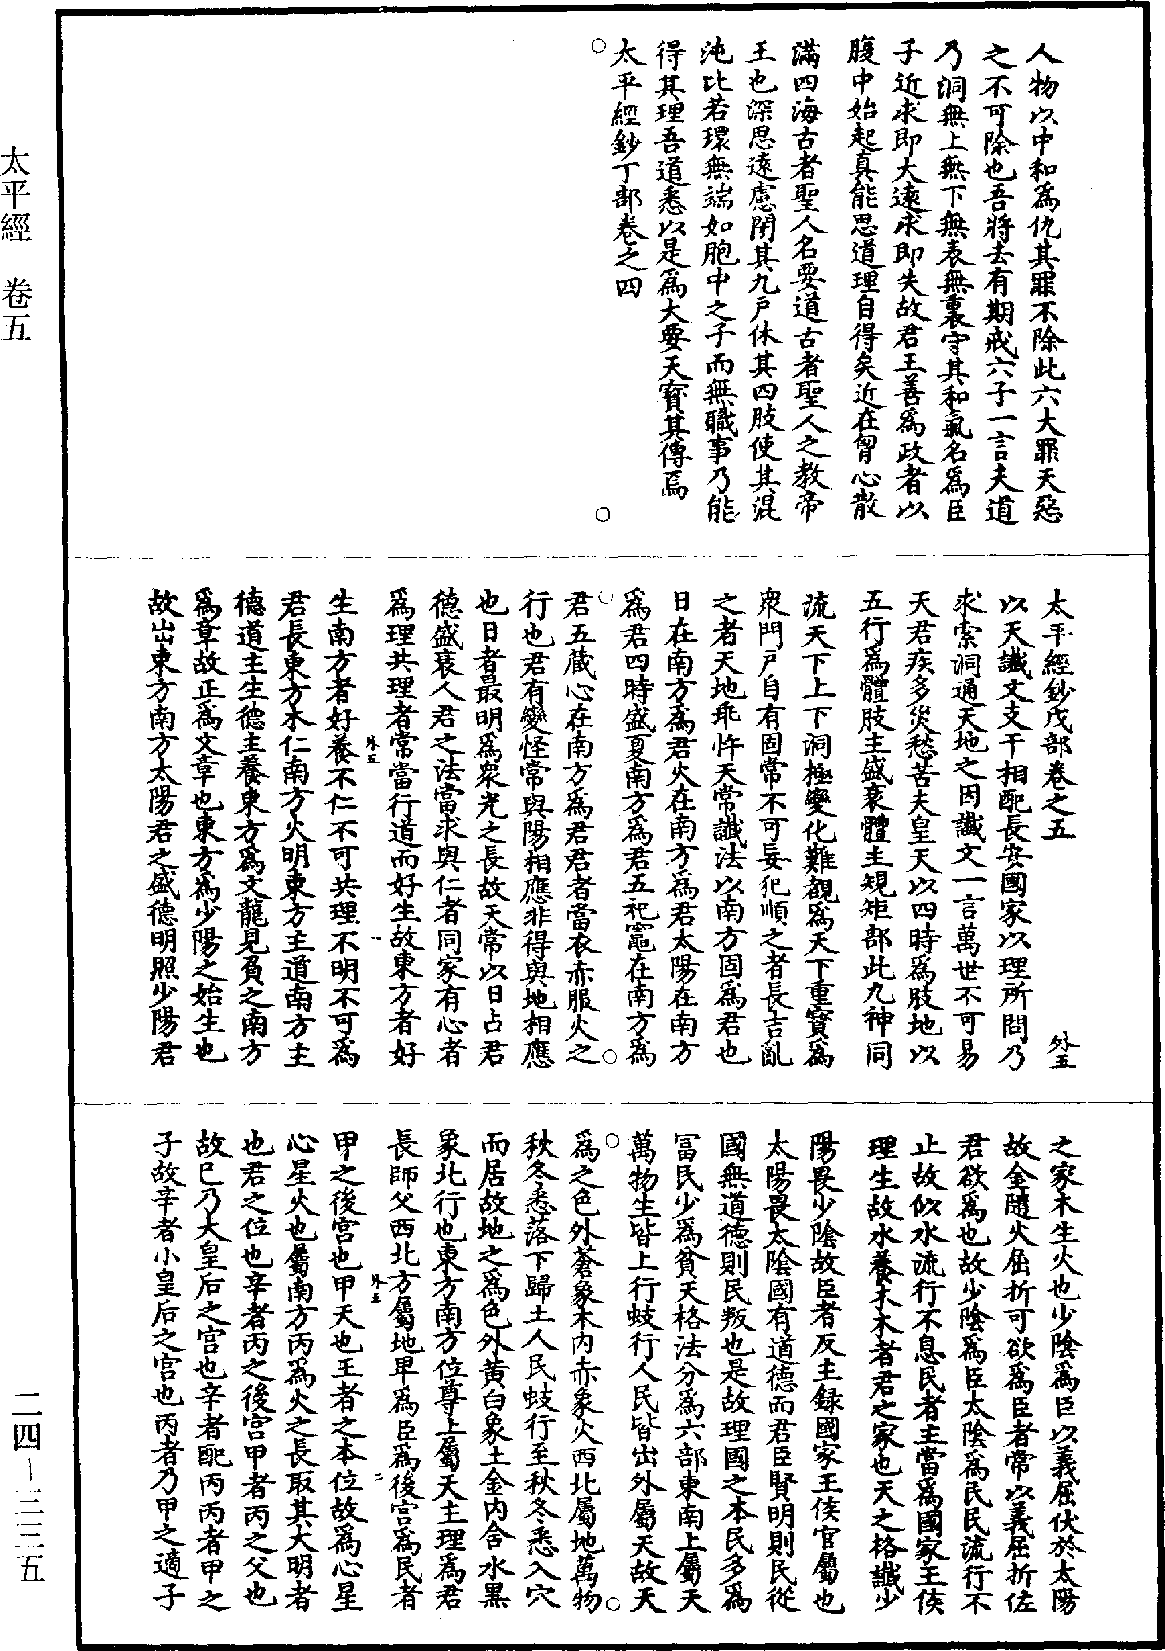 太平經　卷五
人物以中和爲仇其罪不除此六大罪天惡
之不可除也吾將去有期戒六子一言夫道
乃洞無上無下無表無裏守其和氣名爲臣
子近求即大遠求即失故君王善爲政者以
腹中始起真能思道理自得矣近在胷心散
滿四海古者聖人名要道古者聖人之教帝
王也深思遠慮閉其九戶休其四肢使其混
沌比若環無端如胞中之子而無職事乃能
得其理吾道悉以是爲大要天寳其傳焉
太平經鈔丁部卷之四
太平經鈔戊部卷之五　外五
以天讖文支干相配長安國家以理所問乃
求索洞通天地之因讖文一言萬世不可易
天君疾多災愁苦夫皇天以四時爲肢地以
五行爲體肢主盛衰體主規矩部此九神同
流天下上下洞極變化難覩爲天下重寳爲
衆門戶自有固常不可妄犯順之者長吉亂
之者天地乖忤天常讖法以南方固爲君也
日在南方爲君火在南方爲君太陽在南方
爲君四時盛夏南方爲君五祀竈在南方爲
君五藏心在南方爲君君者當衣赤服火之
行也君有變怪常與陽相應非得與地相應
也日者最明爲衆光之長故天常以日占君
德盛衰人君之法當求與仁者同家有心者
爲理共理者常當行道而好生故東方者好
外五　一
生南方者好養不仁不可共理不明不可爲
君長東方木仁南方火明東方主道南方主
德道主生德主養東方爲文龍見負之南方
爲章故正爲文章也東方爲少陽之始生也
故出東方南方太陽君之盛德明照少陽君
之家木生火也少陰爲臣以義屈伏於太陽
故金隨火屈折可欲爲臣者常以義屈折佐
君欲爲也故少陰爲臣太陰爲民民流行不
止故似水流行不息民者主當爲國家主侯
理生故水養木木者君之家也天之格讖少
陽畏少陰故臣者反主錄國家王侯官屬也
太陽畏太陰國有道德而君臣賢明則民從
國無道德則民叛也是故理國之本民多爲
富民少爲貧天格法分爲六部東南上屬天
萬物生皆上行蚑行人民皆出外屬天故天
爲之色外蒼象木内赤象火西北屬地萬物
秋冬悉落下歸土人民蚑行至秋冬悉入穴
而居故地之爲色外黄白象土金内含水黑
象北行也東方南方位尊上屬天主理爲君
長師父西北方屬地卑爲臣爲後宫爲民者
外五　二
甲之後宫也甲天也王者之本位故爲心星
心星火也屬南方丙爲火之長取其大明者
也君之位也辛者丙之後宫甲者丙之父也
故巳乃大皇后之宫也辛者配丙丙者甲之
子故辛者小皇后之宫也丙者乃甲之適子
二四—三二五